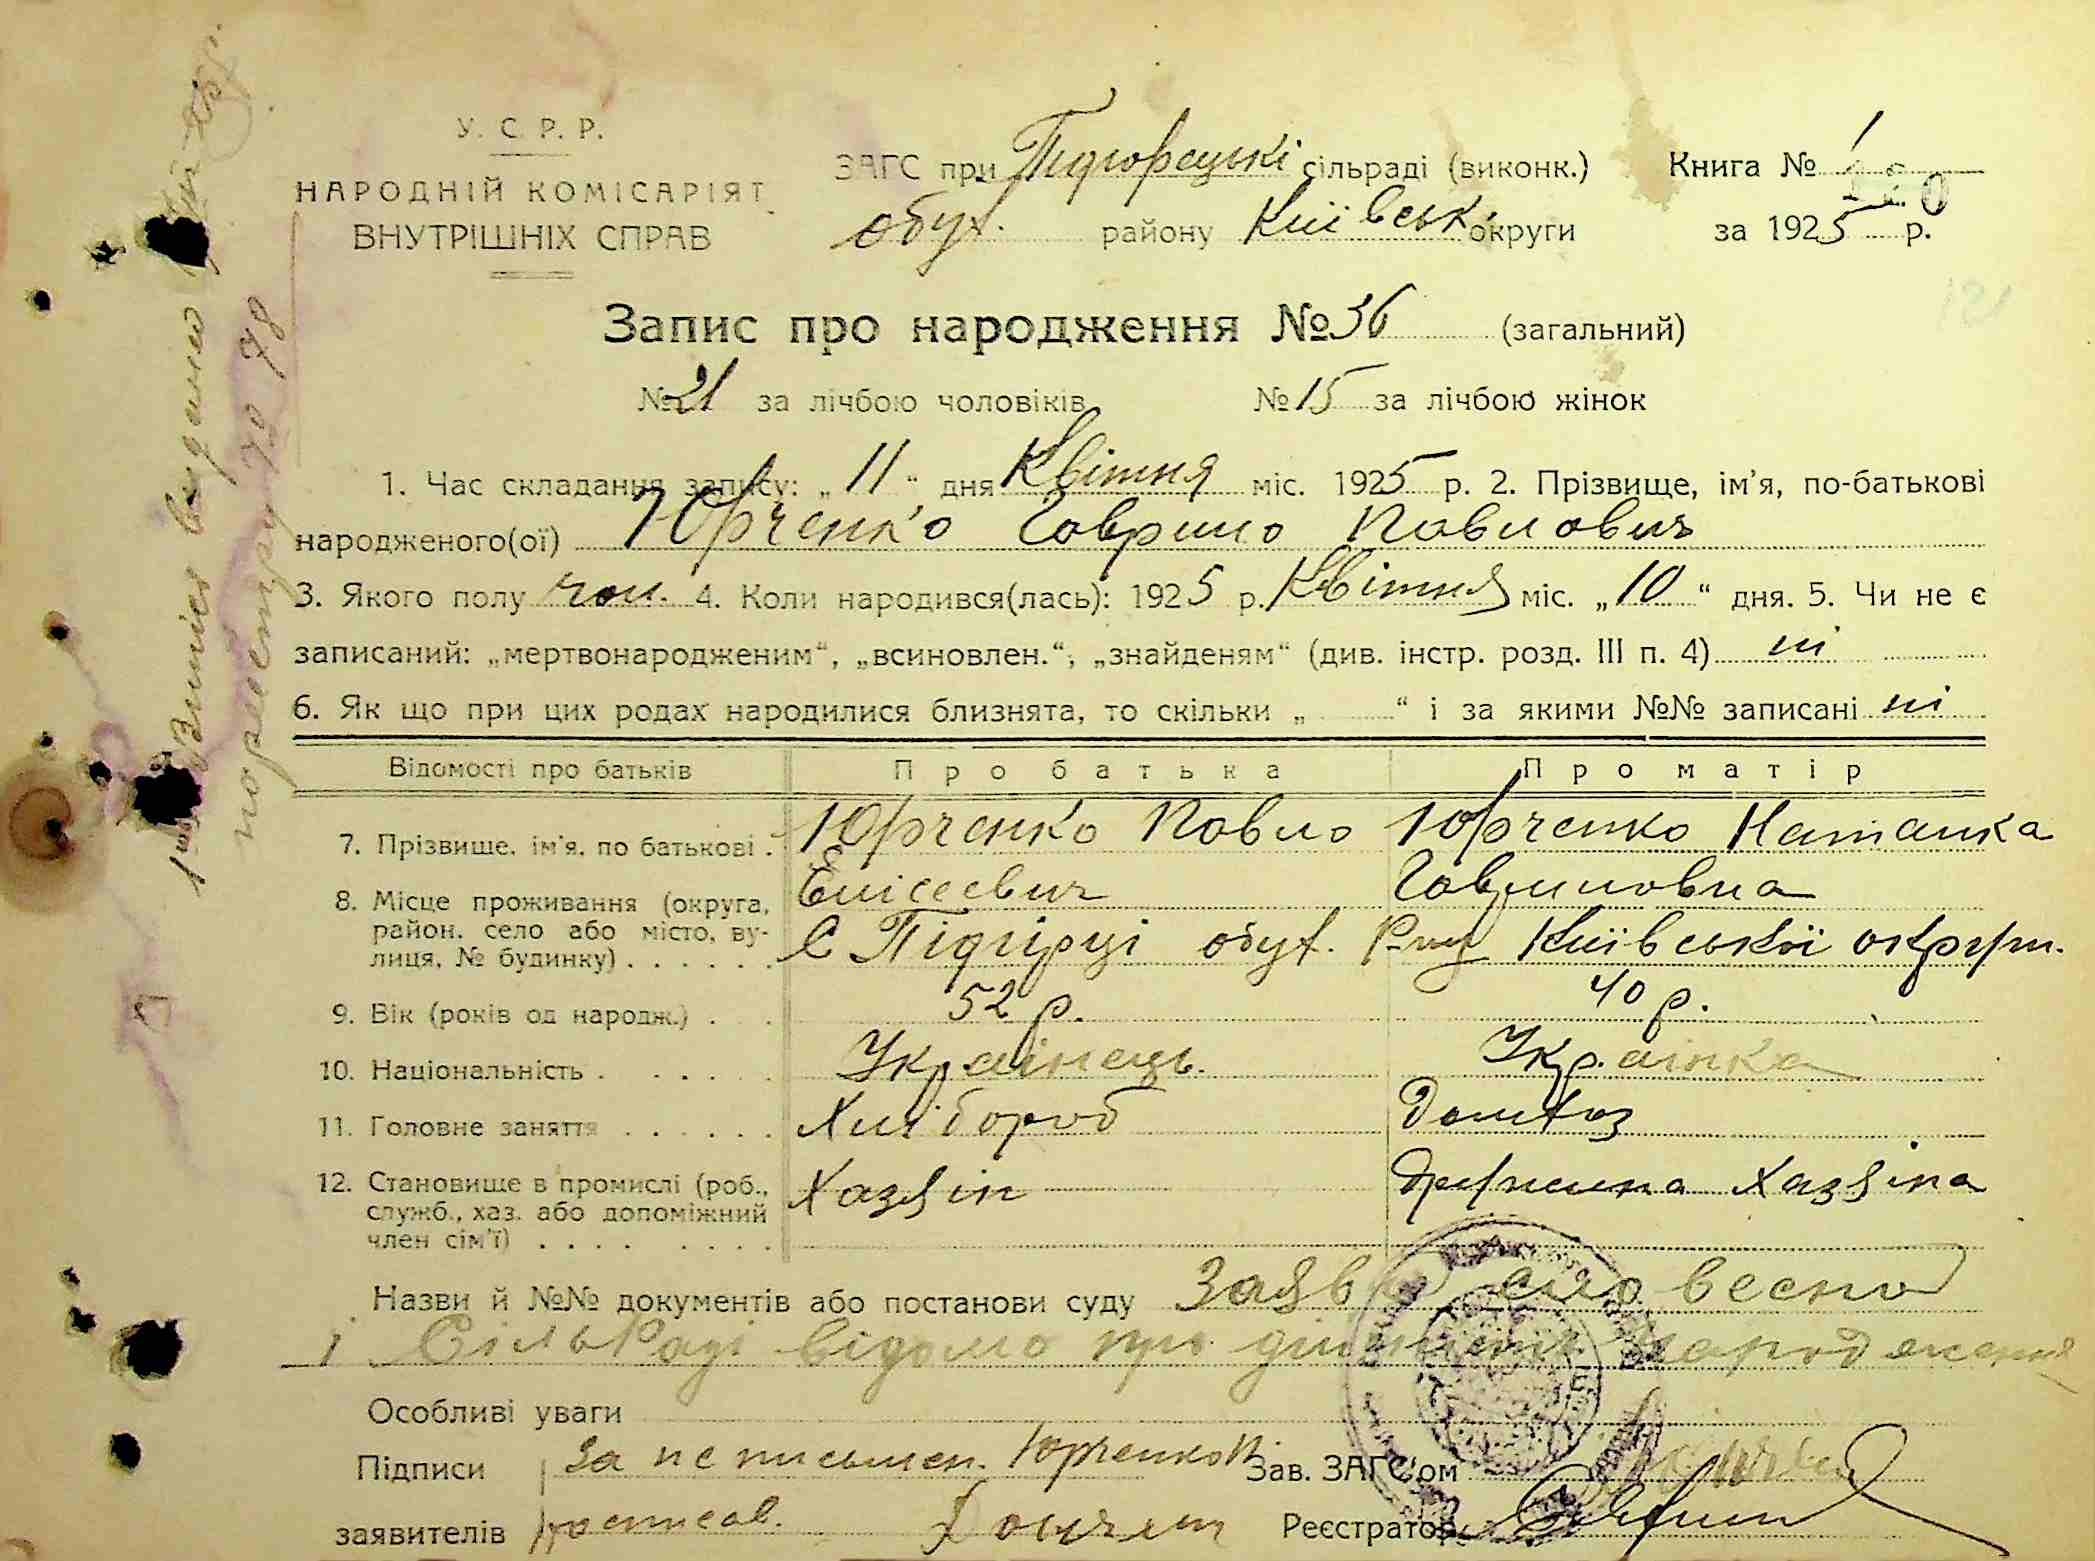 У. С. Р. Р.
НАРОДНІЙ КОМІСАРІЯТ
ВНУТРІШНІХ СПРАВ
ЗАГС при Підгорецькі сільраді (виконк.)
обух. району Київськ. округи
Книга № 1
120
за 1925 р.
121
Запис про народження № 36 (загальний)
№ 21 за лічбою чоловіків № 15 за лічбою жінок
1. Час складання запису: „11“ дня Квітня міс. 1925 р. 2. Прізвище, ім'я, по-батькові
народженого(ої) Юрченко Гаврило Павлович
3. Якого полу чол. 4. Коли народився(лась): 1925 р. Квітня міс. „10“ дня. 5. Чи не є
записаний: „мертвонародженим“, „всиновлен.“, „знайденям“ (див. інстр. розд. III п. 4) ні
6. Як що при цих родах народилися близнята, то скільки „ “ і за якими №№ записані ні
Відомості про батьків Про батька Про матір
7. Прізвище, ім'я, по батькові . Юрченко Павло Юрченко Наталка
Елісеевич Гавриловна
8. Місце проживання (округа,
район, село або місто, ву-
лиця, № будинку) . . . . . . С Підгірці обух. Київської округи.
9. Вік (років од народж.) . . 52 р. 40 р.
10. Національність . . . . . Українець. Українка
11. Головне заняття . . . . . . Хлібороб Домхоз
12. Становище в промислі (роб.,
служб., хаз. або допоміжний
член сім'ї) . . . . . . . . Хазяін Дружина Хазяіна
Назви й №№ документів або постанови суду Заява словесна
і СільРаді відомо про народження
Особливі уваги
Підписи За неписьмен. Юрченко Зав. ЗАГС'ом
заявителів росписав. Реєстратор
Випись видано
по реєстру № 78